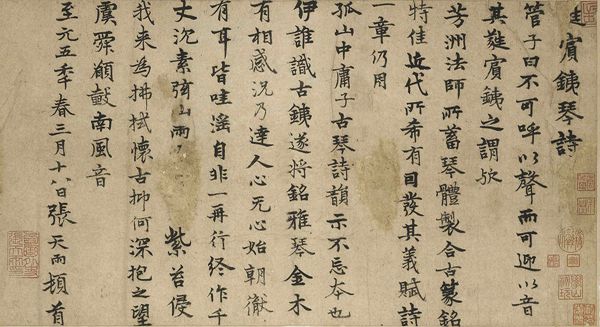 蕤賓鐵琴詩
管子曰不可呼以聲而可迎以音
其蕤賓鐵之謂歟
芳洲法師所蓄琴體製合古篆銘
特佳近代所希有因發其義賦詩
一章仍用
孤山中庸子古琴詩韻示不忘本也
伊誰識古鐵遂將銘雅琴金木
有相感況乃達人心无心始朝徹
有耳皆哇滛自非一再行終作千
丈沉素弦山雨 紫苔侵
我来為拂拭懷古抑何深抱之望
虞舜願鼓南風音
至元五季春三月十八日張天雨頓首